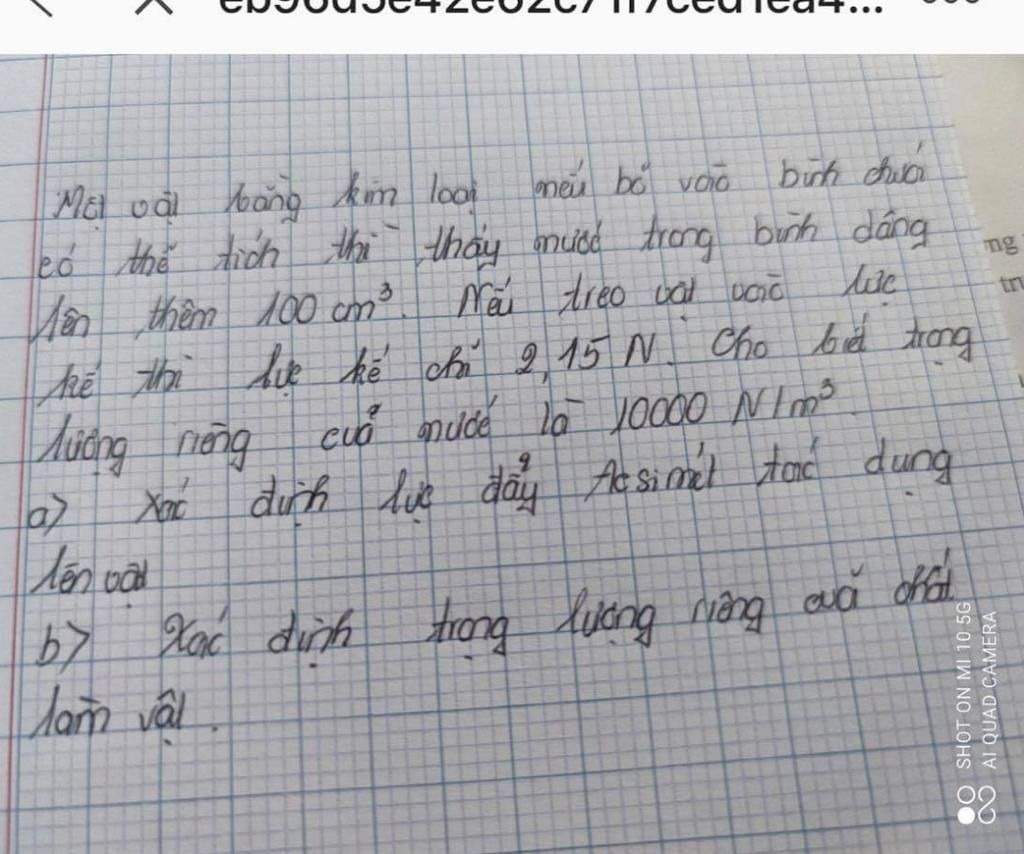 eb96d5e42e62c71f7ced1ea4...
Một vật bằng kim loại nếu bỏ vào bình chứa
có thể tích thì thấy nước trong bình dâng
lên thêm 100 cm³. Nếu treo vật vào lực
kế thì lực kế chỉ 2,15 N. Cho biết trọng
lượng riêng của nước là 10000 N/m³
a) Xác định lực đẩy Acsimét tác dụng
lên vật
b) Xác định trọng lượng riêng của chất
làm vật.
ng
SHOT ON MI 10 5G
AI QUAD CAMERA